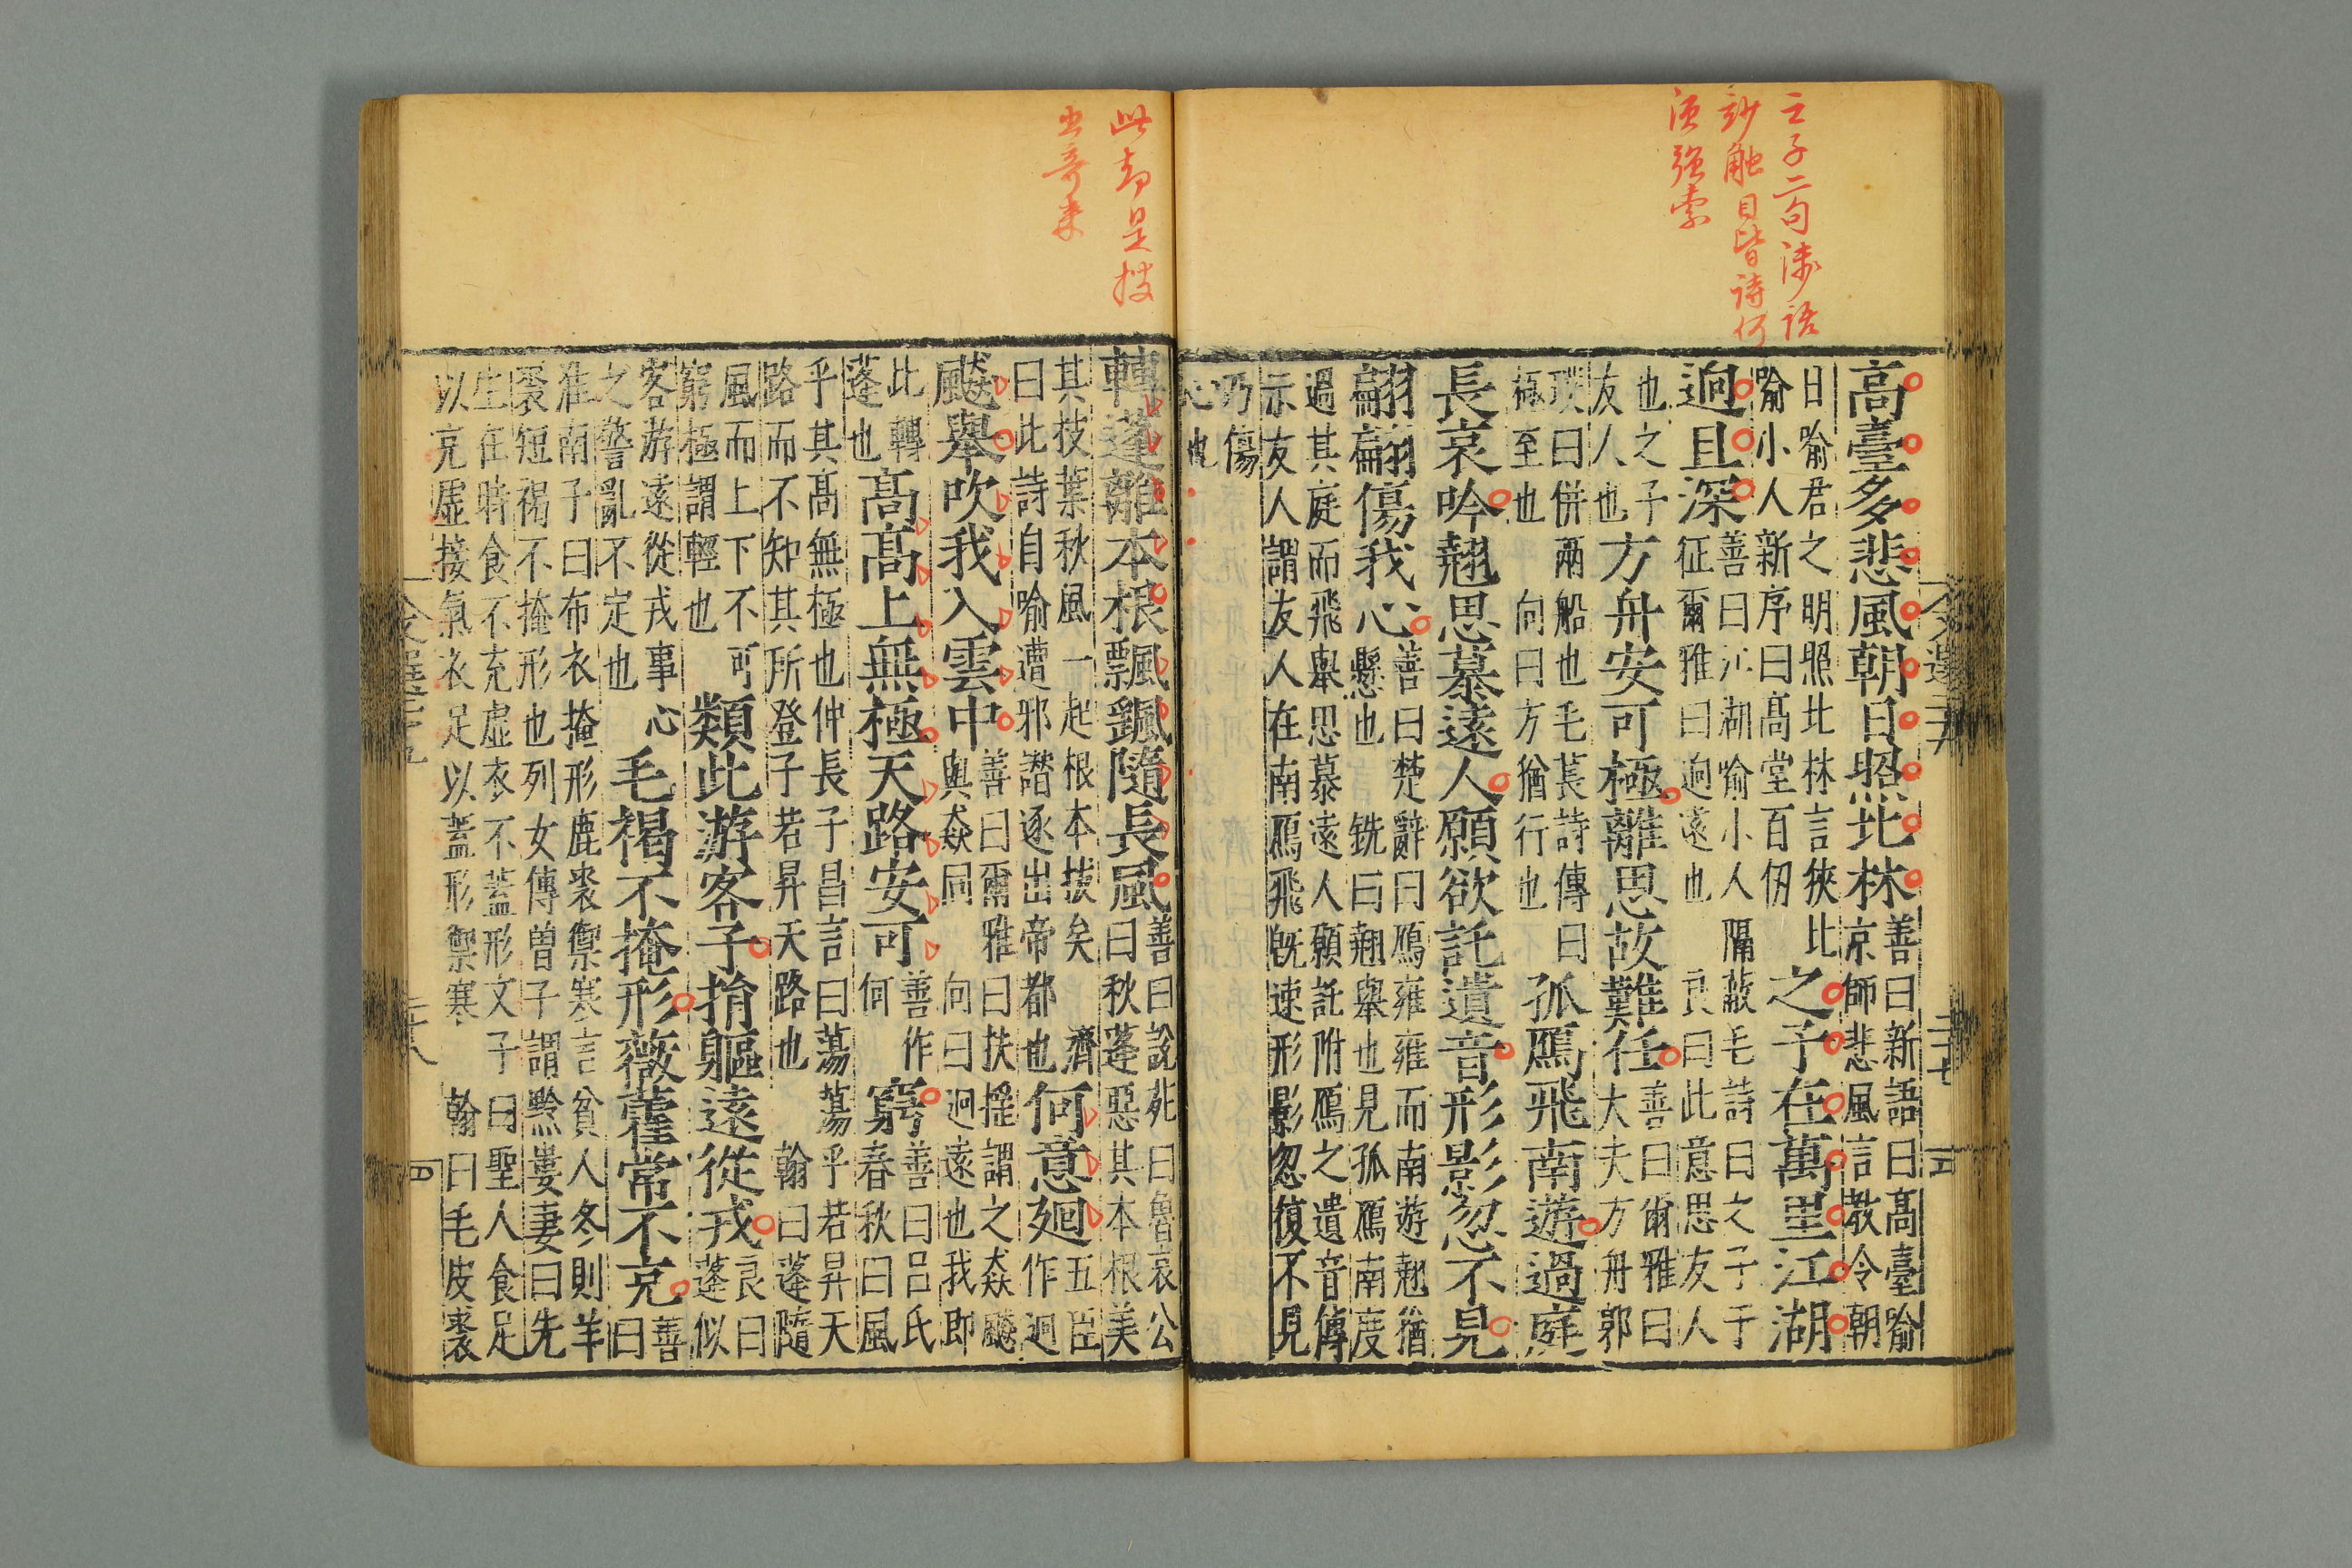 之子二句淺語
妙觸目皆詩何
須強索
高臺多悲風朝日照北林善曰新語曰髙臺喻
京師悲風言教令朝
日喻君之明照北林言狹比
喻小人新序曰髙堂百仞之子在萬里江湖
迥且深善曰江湖喻小人隔蔽毛詩曰之子于
征爾雅曰迥遠也良曰此意思友人
也之子
友人也方舟安可極離思故難任善曰爾雅曰
大夫方舟郭
璞曰併兩船也毛萇詩傳曰
極至也向曰方猶行也孤鴈飛南遊過庭
長哀吟翹思慕遠人願欲託遺音形影忽不見
翩翩傷我心善曰楚辭曰鴈雍雍而南遊翹猶
懸也銑曰翹舉也見孤鴈南度
過其庭而飛舉思慕遠人願託附鴈之遺音傳
示友人謂友人在南鴈飛旣速形影忽復不見
乃傷
心也
此却是搜
出奇來
轉蓬離本根飄颻隨長風善曰說苑曰魯哀公
曰秋蓬惡其本根美
其枝葉秋風一起根本拔矣濟
曰此詩自喻遭邪譖逐出帝都也何意迴五臣
作迥
飇舉吹我入雲中善曰爾雅曰扶搖謂之猋飇
與猋同向曰迥遠也我即
比轉
蓬也髙髙上無極天路安可善作
何窮善曰呂氏
春秋曰風
乎其髙無極也仲長子昌言曰蕩蕩乎若昇天
路而不知其所登子若昇天路也翰曰蓬隨
風而上下不可
窮極謂輕也類此游客子捐軀遠從戎良曰
蓬似
客游遠從戎事心
之警亂不定也毛褐不掩形薇藿常不充善
曰
淮南子曰布衣掩形鹿裘禦寒言貧人冬則羊
裘短褐不掩形也列女傳曾子謂黔婁妻曰先
生在時食不充虛衣不蓋形文子曰聖人食足
以充虛接氣衣足以蓋形禦寒翰曰毛皮裘